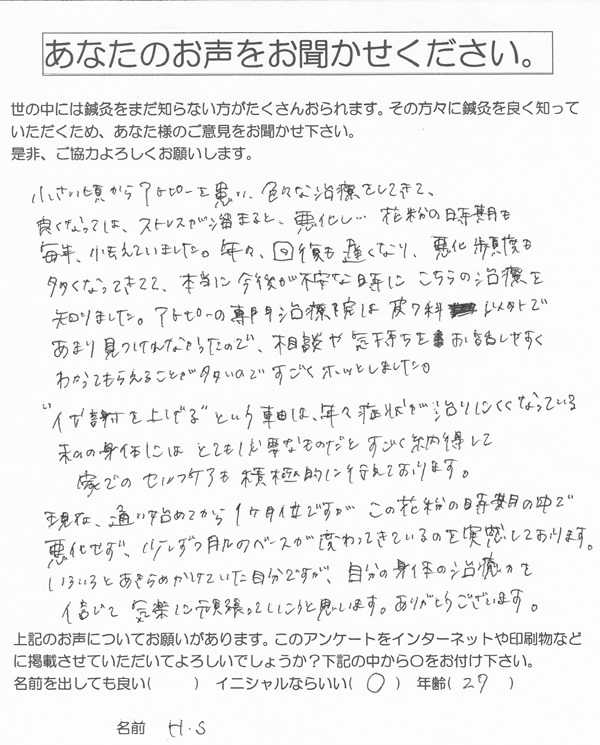 あなたのお声をお聞かせください。
世の中には鍼灸をまだ知らない方がたくさんおられます。その方々に鍼灸を良く知って
いただくため、あなた様のご意見をお聞かせ下さい。
是非、ご協力よろしくお願いします。
小さい頃からアトピーを患い、色々な治療をしてきて、
良くなっては、ストレスが溜まると、悪化し… 花粉の時期も
毎年、怯えていました。年々、回復も遅くなり、悪化頻度も
多くなってきてて、本当に今後が不安な時にこちらの治療を
知りました。アトピーの専門治療院は皮フ科以外で
あまり見つけれなかったので、相談や気持ちをお話しやすく
わかってもらえることが多いのですごくホッとしました。
"代謝を上げる"という事は、年々症状が治りにくくなっている
私の身体にはとても必要なものだとすごく納得して
家でのセルフケアも積極的に行えております。
現在、通い始めてから1ヶ月位ですがこの花粉の時期の中で
悪化せず、少しずつ肌のベースが変わってきているのを実感しております。
いろいろとあきらめかけていた自分ですが、自分の身体の治癒力を
信じて気楽に頑張っていこうと思います。ありがとうございます。
上記のお声についてお願いがあります。このアンケートをインターネットや印刷物など
に掲載させていただいてよろしいでしょうか？下記の中から○をお付け下さい。
名前を出しても良い(　　) イニシャルならいい( ○ ) 年齢( 27 )
名前 H.S